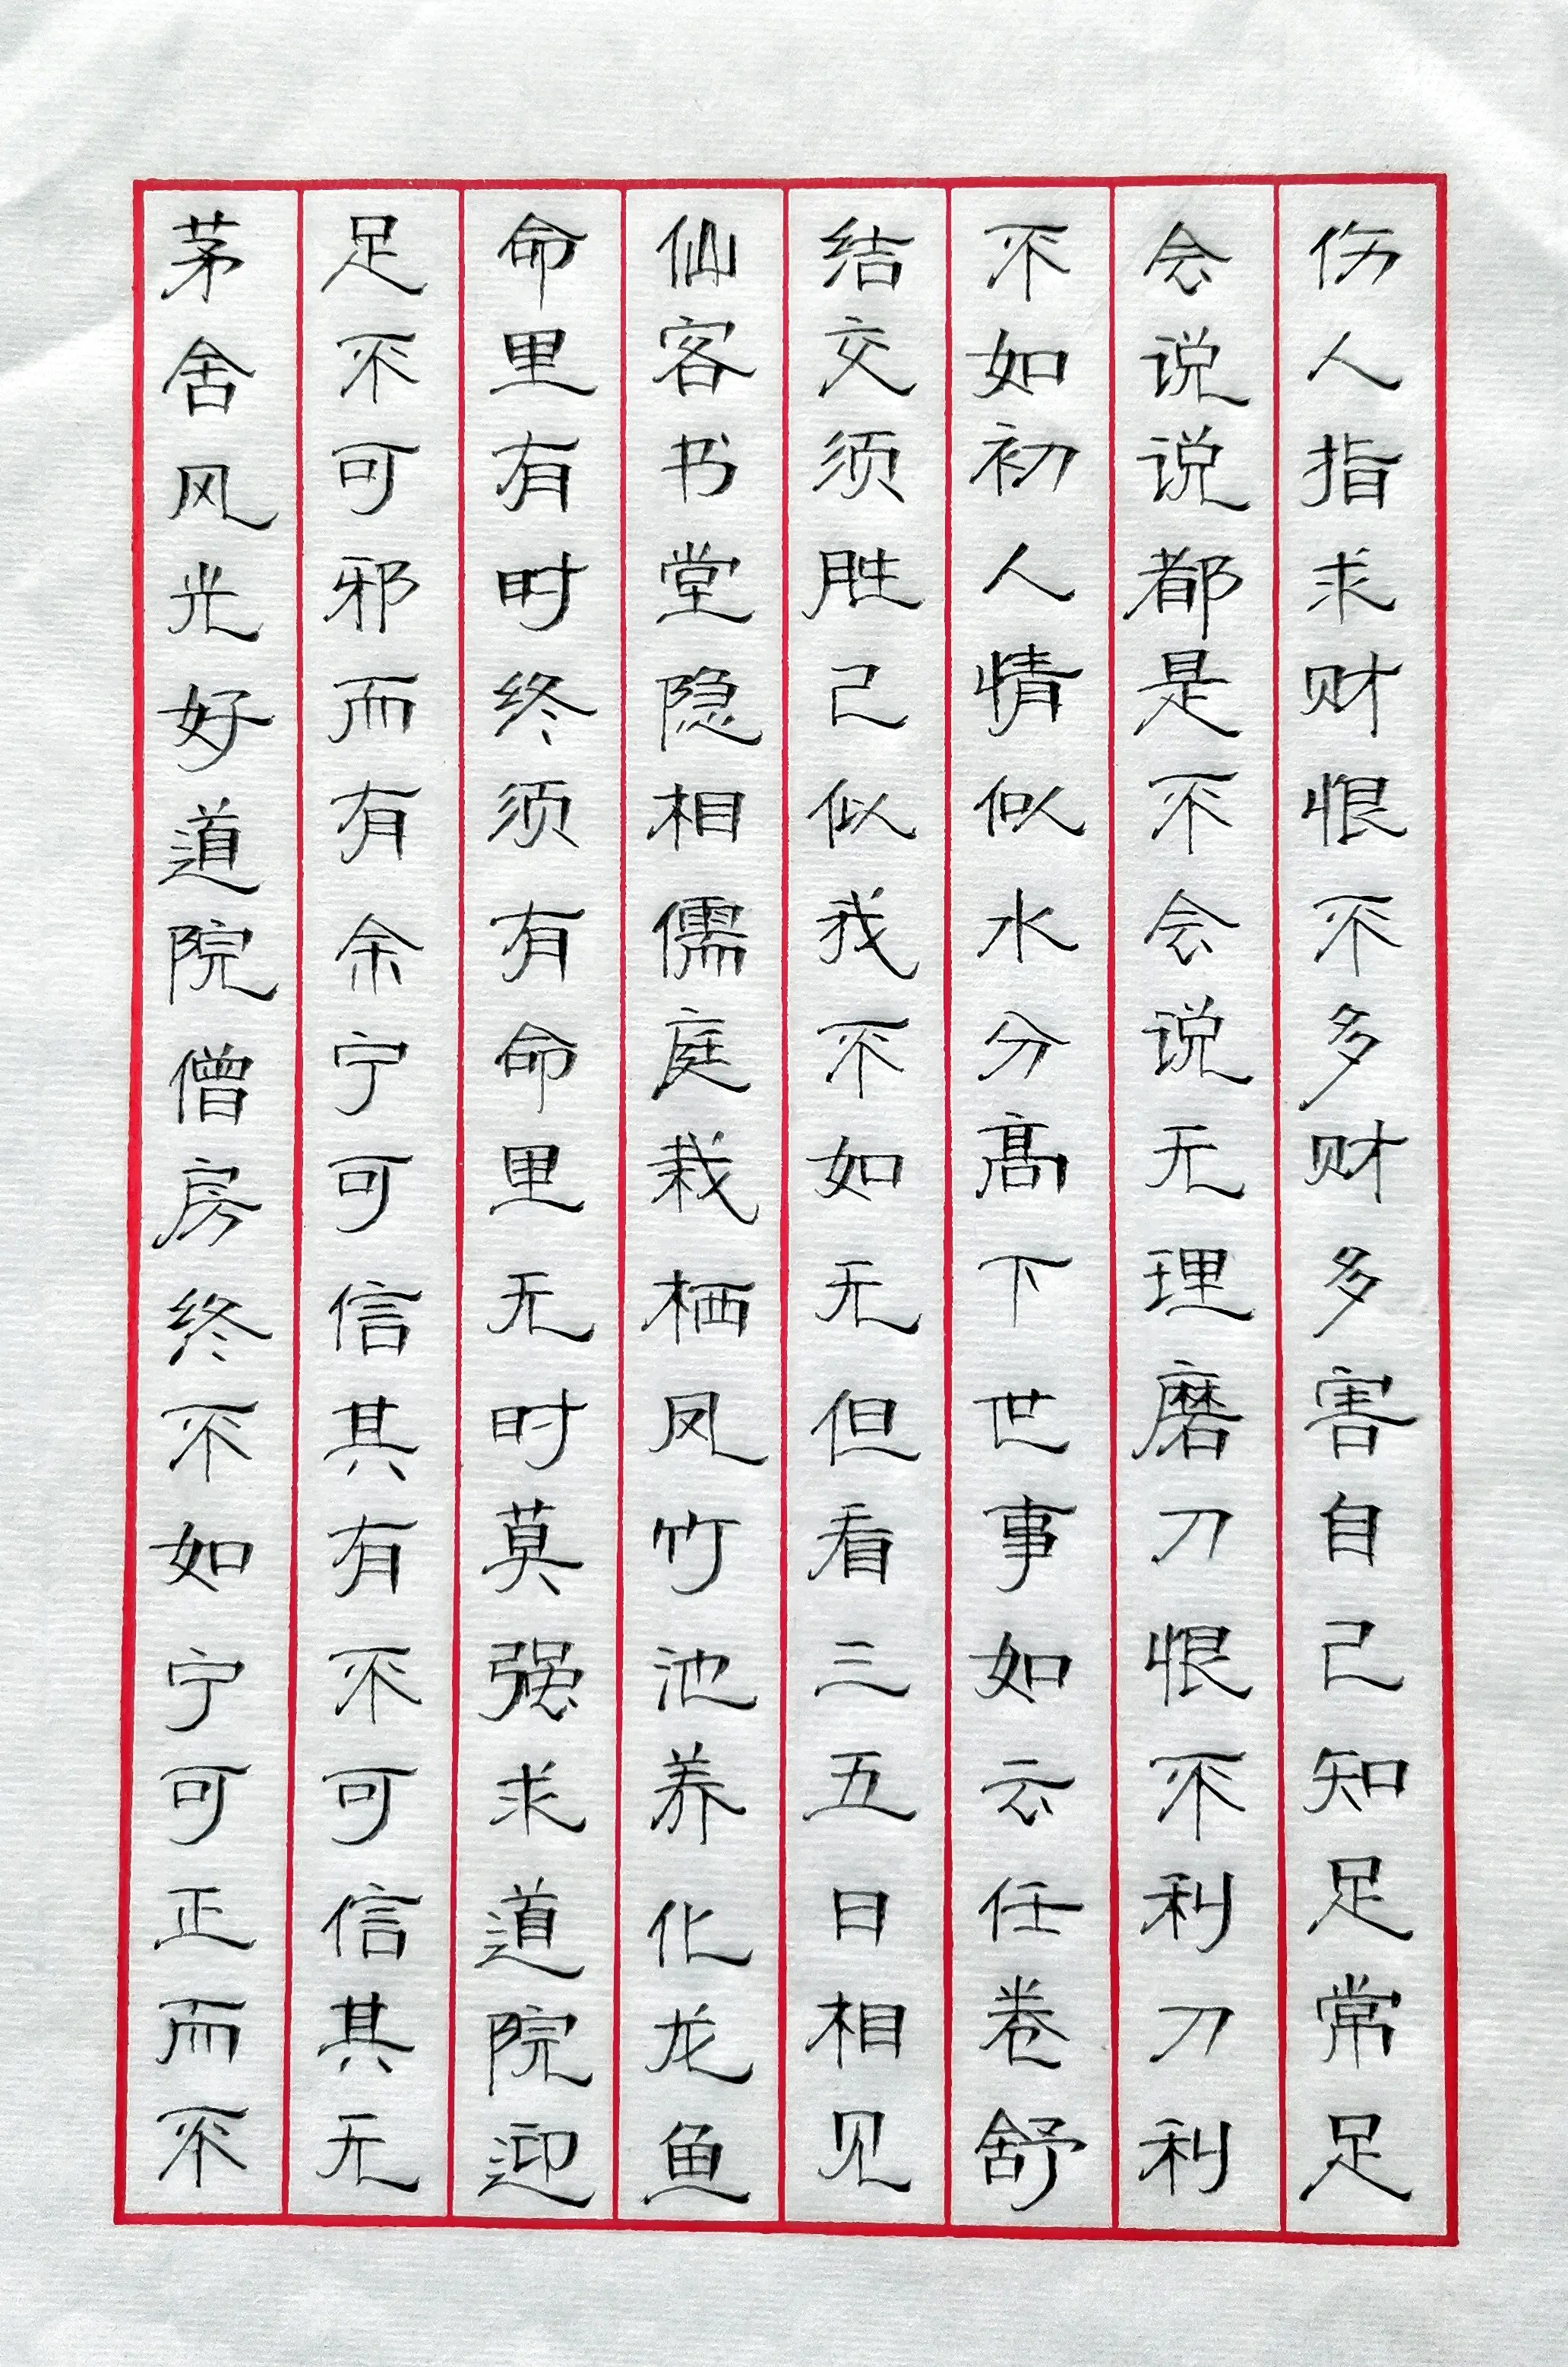 伤人指求财恨不多财多害自己知足常足
会说说都是不会说无理磨刀恨不利刀利
不如初人情似水分高下世事如云任卷舒
结交须胜己似我不如无但看三五日相见
仙客书堂隐相儒庭栽栖凤竹池养化龙鱼
命里有时终须有命里无时莫强求道院迎
足不可邪而有余宁可信其有不可信其无
茅舍风光好道院僧房终不如宁可正而不